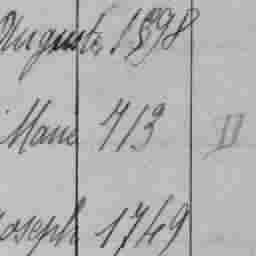 Auguste 1898
Marie 713 II
Joseph 1749